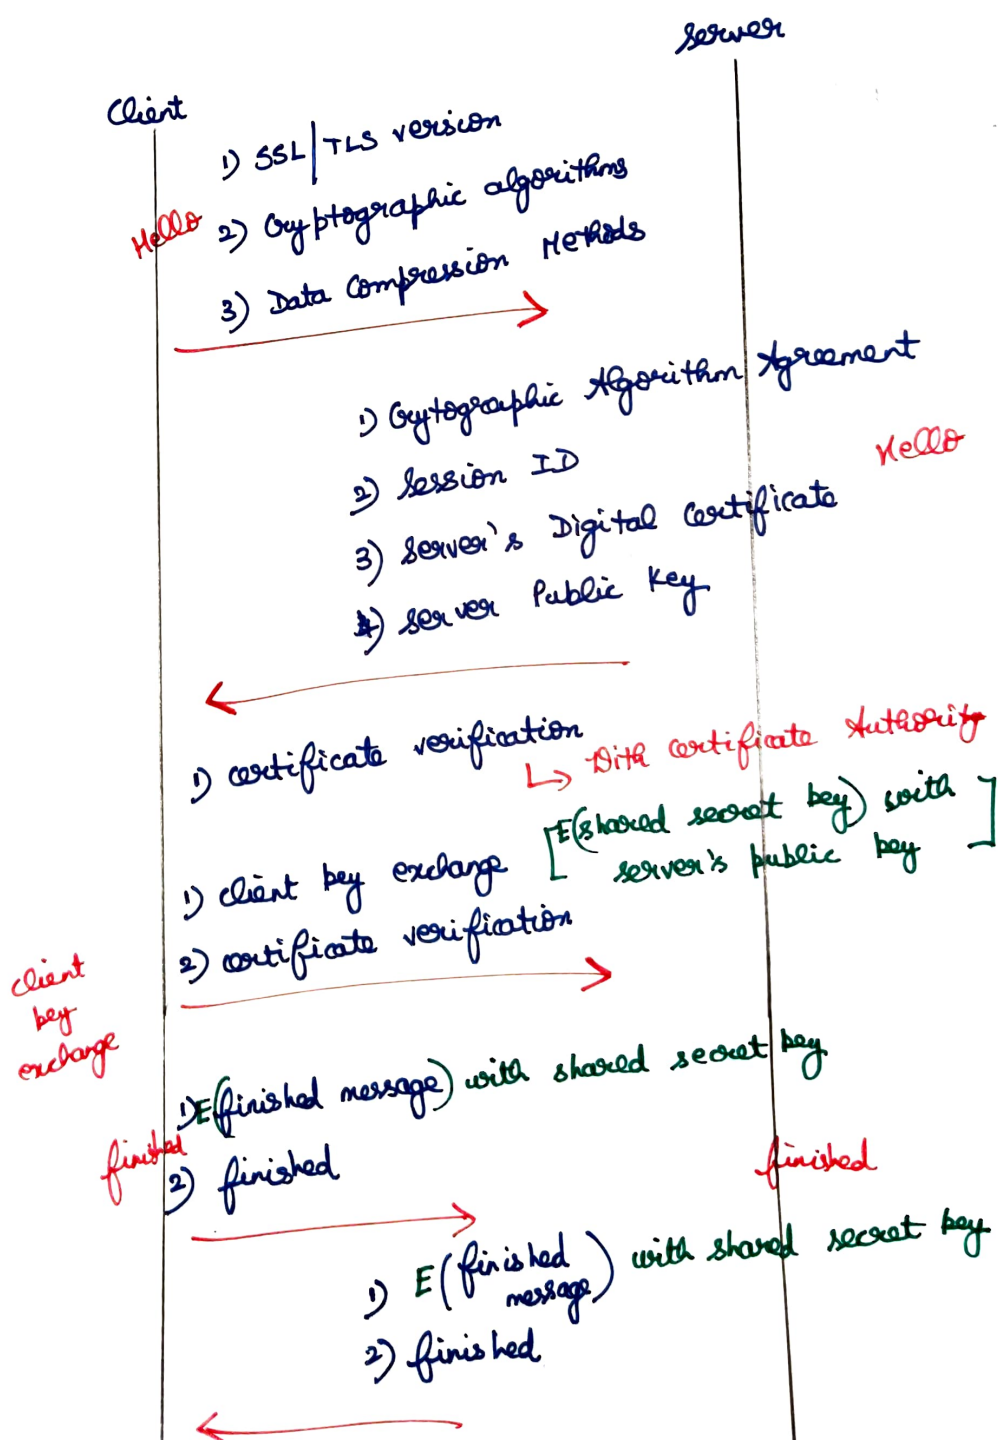 Server
Client
1) SSL|TLS version
Hello
2) Cryptographic algorithms
3) Data Compression Methods
1) Crytographic Algorithm Agreement
Hello
2) Session ID
3) Server's Digital Certificate
4) Server Public Key
1) certificate verification
↳ With certificate Authority
[E(shared secret key) with
server's public key]
1) client key exchange
2) certificate verification
client
key
exchange
1) E(finished message) with shared secret key
finished
2) finished
finished
1) E(finished
message) with shared secret key
2) finished